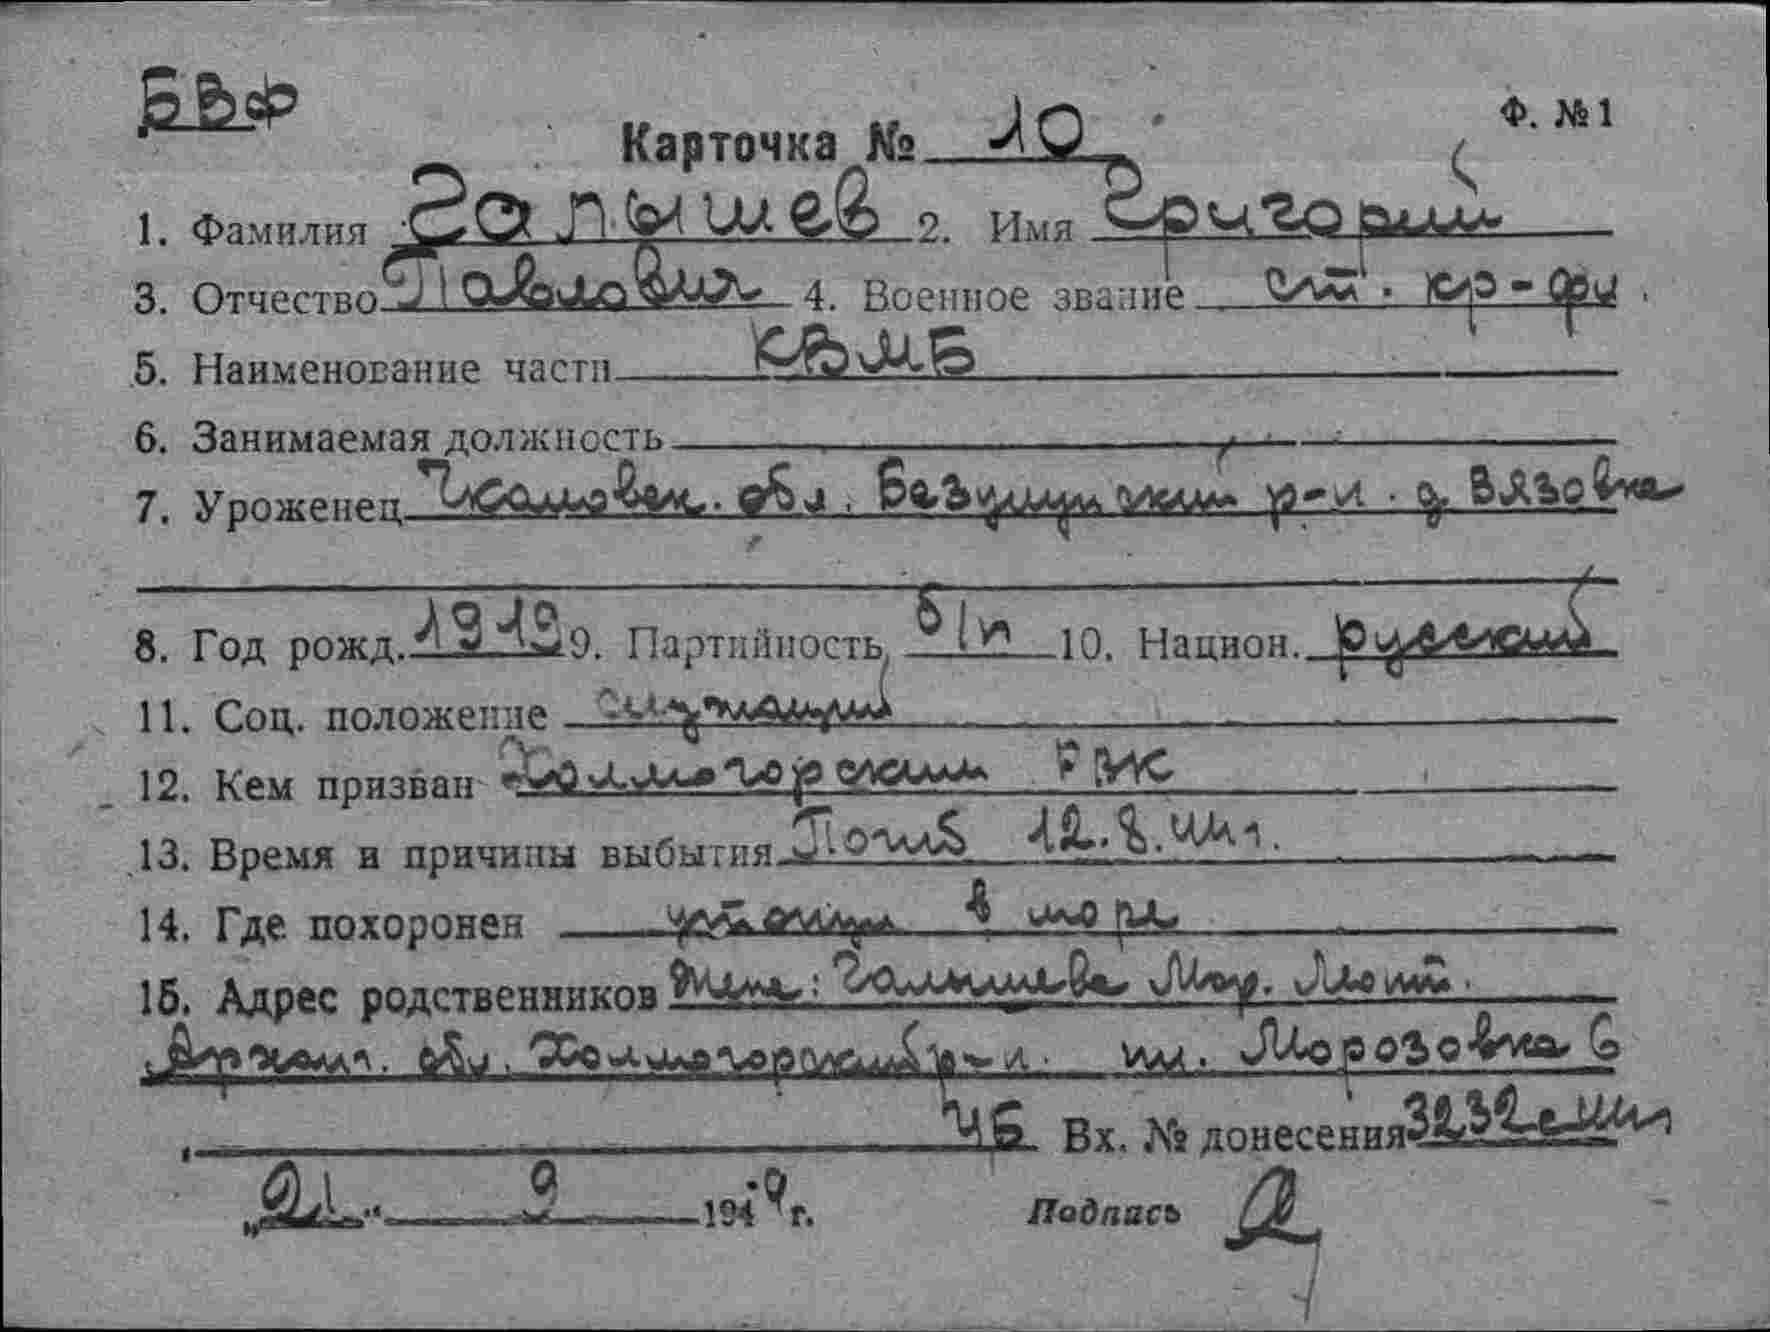 БВФ
Ф. №1
Карточка № 10
1. Фамилия Галышев 2. Имя Григорий
3. Отчество Павлович 4. Военное звание ст. кр-фл
5. Наименование части КВМБ
6. Занимаемая должность
7. Уроженец Чкаловск. обл. Бузулукский р-н. д. Вязовка
8. Год рожд. 1919 9. Партийность б/п 10. Национ. русский
11. Соц. положение служащий
12. Кем призван Холмогорским РВК
13. Время и причины выбытия Погиб 12.8.41г.
14. Где похоронен утонул в море
15. Адрес родственников Жена: Галышева Мар. 
Арханг. обл. Холмогорский р-н. пл. Морозовка 6
Вх. № донесения 3232с 41г
„21“ 9 194 г.
Подпись